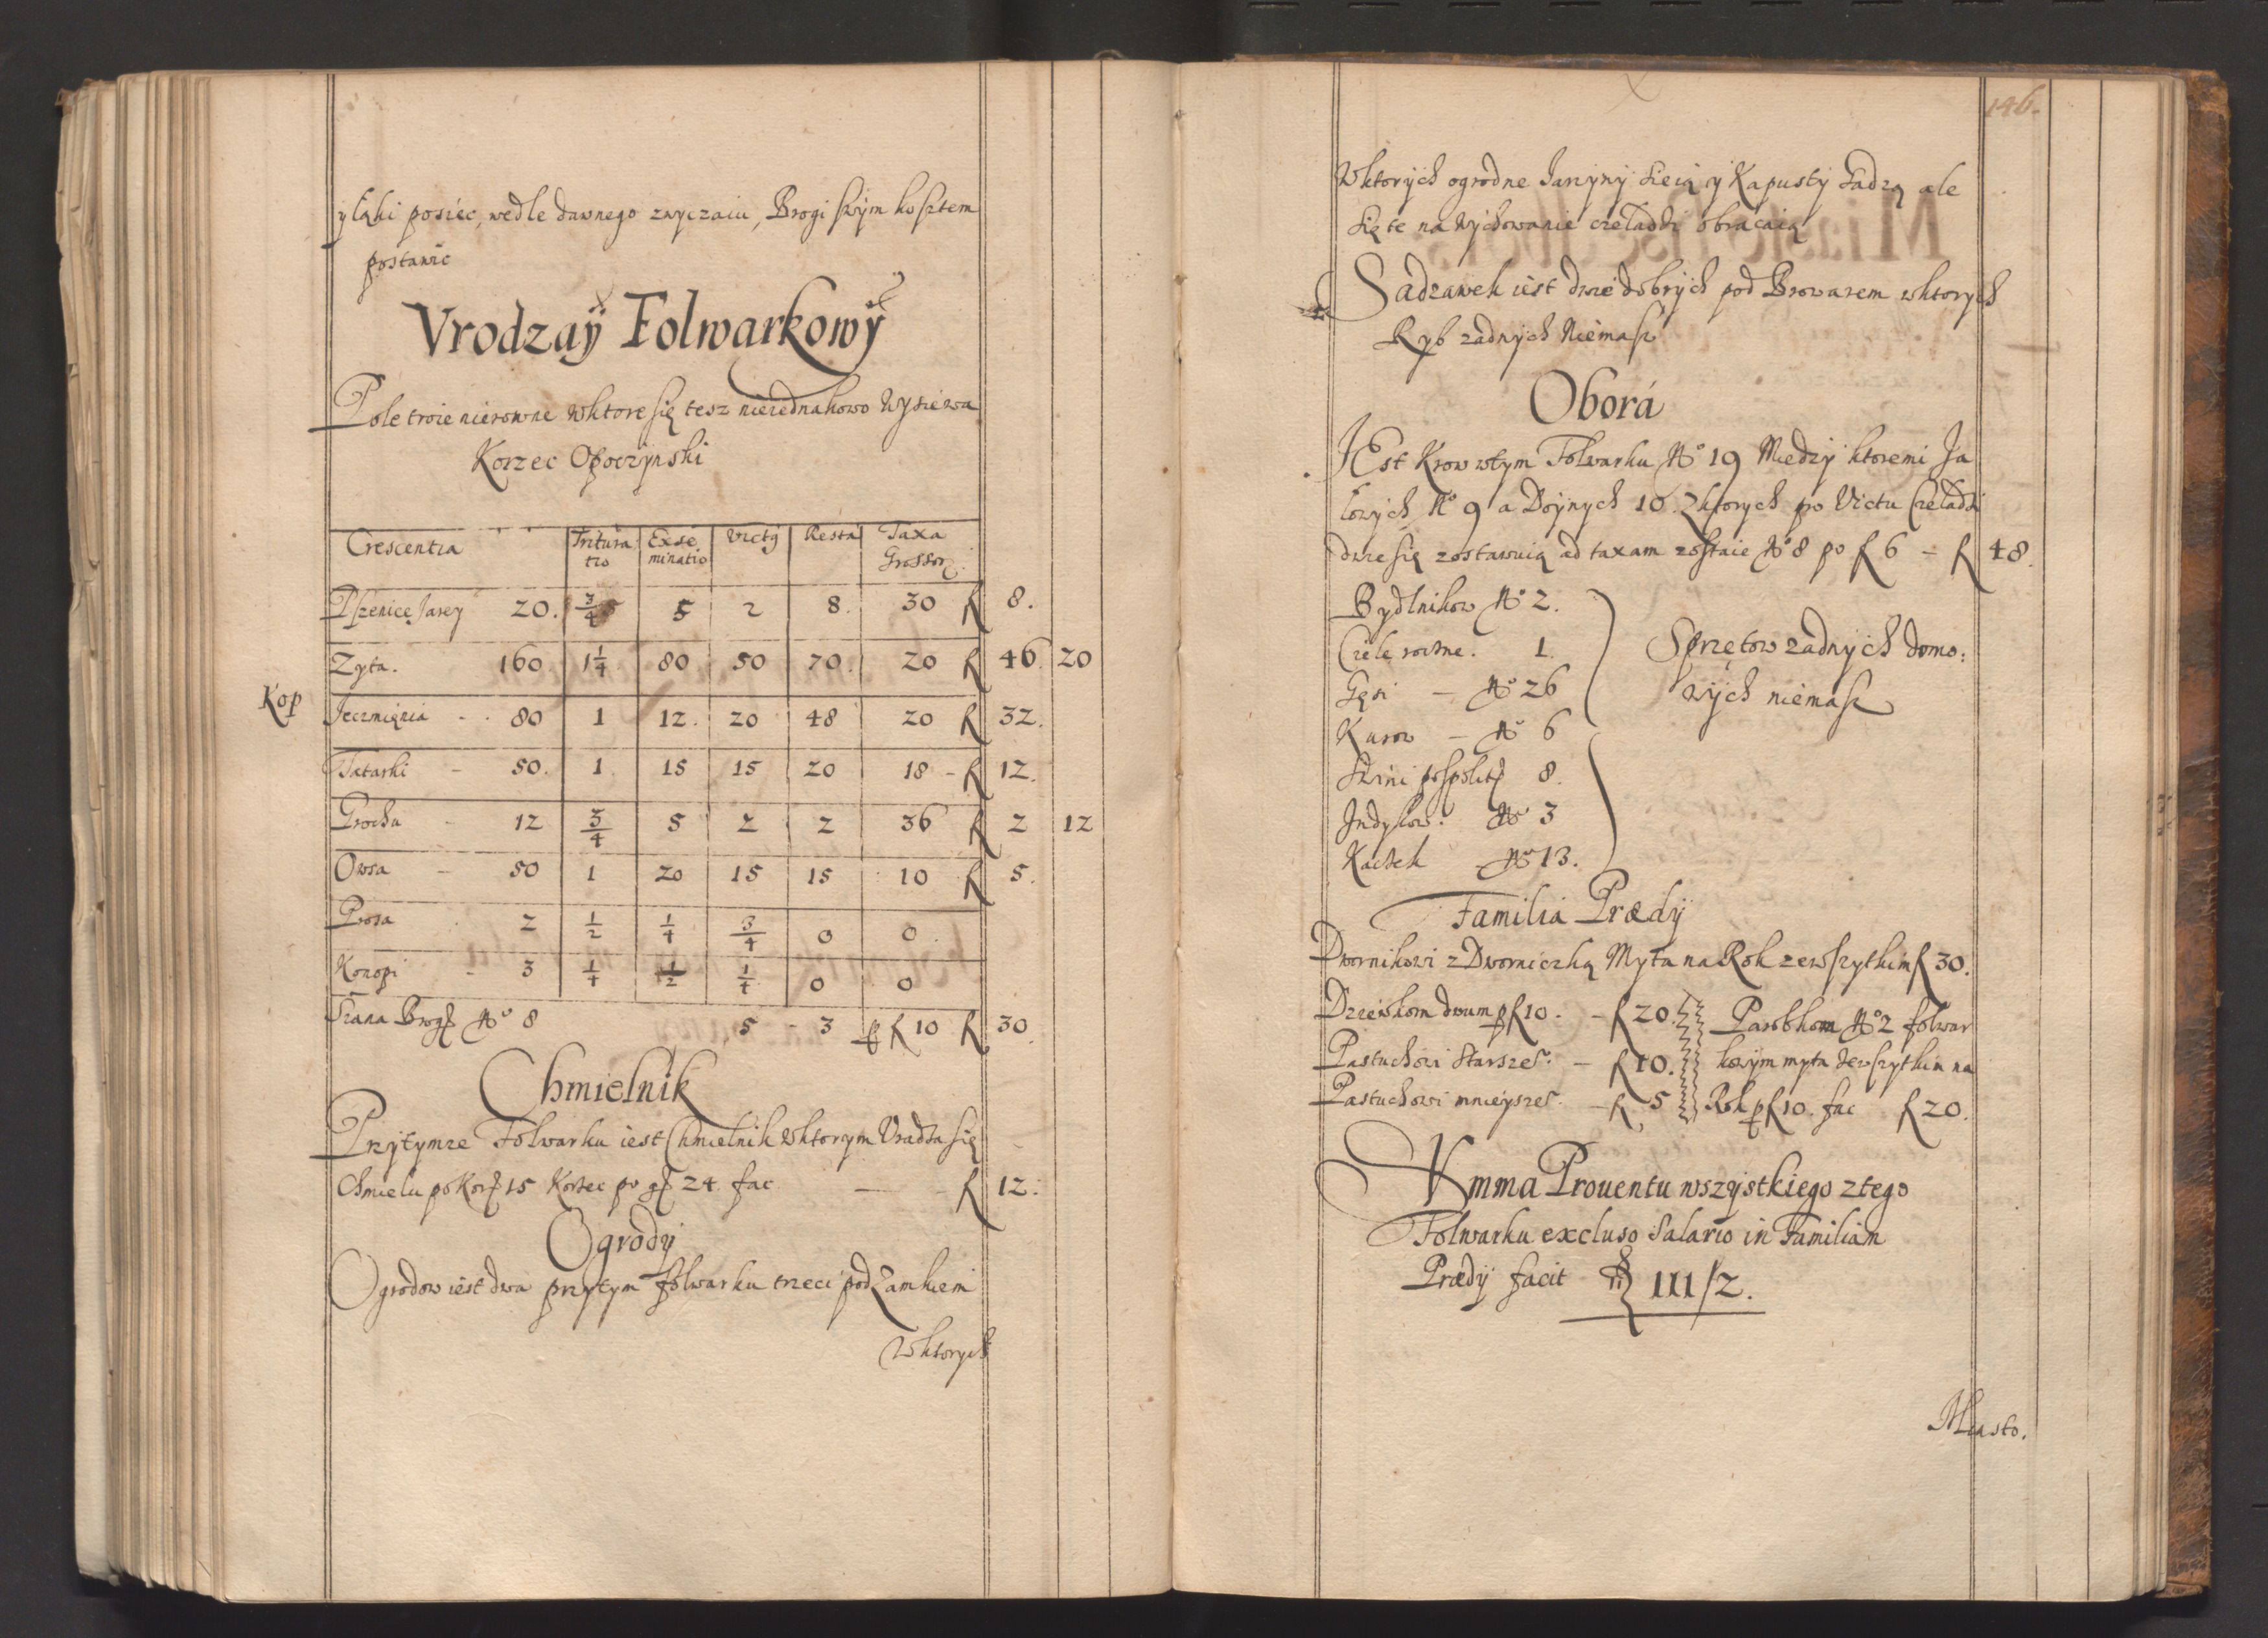 y łąki posiec, wedle dawnego zwyczaiu, Brogi swym kosztem
postawic
Vrodzaÿ Folwarkowÿ
Pole troie nierowne wktore się tesz nieiednakowo wysiewa
Korzec Opoczynski
Crescentia Tritura Exse Victꝰ Resta Taxa
tio minatio Grossor.
Pszenicę Jarey 20. 3/4 5 2 8. 30 f 8.
Zyta. 160 1 1/4 80 50 70. 20 f 46. 20
Kop Jęczmięnia - 80 1 12. 20 48 20 f 32.
Tatarki - 50. 1 15 15 20 18 - f 12.
Grochu - 12 3/4 5 2 2 36 f 2 12
Owsa - 50 1 20 15 15 10 f 5.
Prosa 2 1/2 1/4 3/4 0 0.
Konopi - 3 1/4 1/2 1/4 0 0
Siana Brog. No 8 5 - 3 p f 10 f 30.
Chmielnik
Przytymze Folwarku iest Chmielnik wktorym Vradza się
Chmielu po Korc. 15 Korzec po gr. 24. fac - f 12.
Ogrody
Ogrodow iest dwa przytym folwarku trzeci pod Zamkiem
Wktorych
146.
Wktorych ogrodne Jarzyny sieią y Kapusty sadzą ale
się te na wychowanie czeladzi obracaią
Sadzawek iest dwie dobrych pod Browarem wktorych
Ryb zadnych Niemasz
Oborá
JEst Krow wtym Folwarku No 19 Miedzy ktoremi Ja
łowych No 9 a Doynych 10. Zktorych pro Victu Czeladzi
dwie się zostawuią ad taxam zostaie No 8 po f 6 - f 48.
Bydlnikow No 2.
Ciele roczne. 1.
Gęsi - No 26
Kurow - No 6
Swini pospolit. 8.
Indykow. No 3
Kaczek No 13.
Sprzętow zadnych domo:
wych niemasz
Familia Prædÿ
Dwornikowi z Dworniczką Myta na Rok zewszytkim f 30.
Dziewkom dwum p f 10. - f 20.
Pastuchowi Starszeᵒ. - f 10.
Pastuchowi mnieyszeᵒ. - f 5
Parobkom No 2 folwar
kowym myta zewszytkim na
Rok p f 10. fac f 20.
Summa Prouentu wszystkiego z tego
Folwarku excluso Salario in Familiam
Prædÿ facit f 111/2.
Miasto.